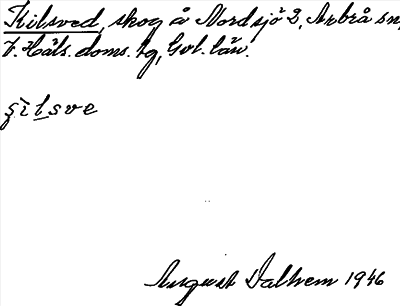 Kilsved, skog å Nordsjö 2, Arbrå sn,
V. Häls. doms. tg, Gvl. län.
şìlsve
August Dalhem 1946